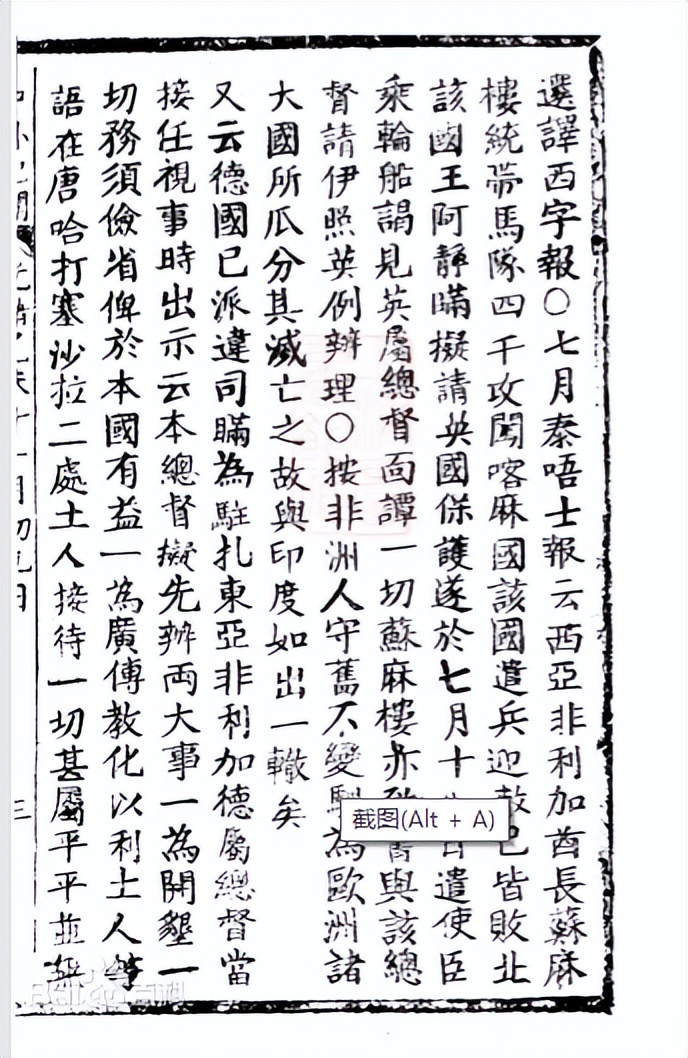 選譯西字報○七月泰唔士報云西亞非利加酋長蘇麻
樓統帶馬隊四千攻闖喀麻國該國遣兵迎敵已皆敗北
該國王阿靜瞞擬請英國保護遂於七月十日遣使臣
乘輪船謁見英屬總督面譚一切蘇麻樓亦書與該總
督請伊照英例辦理○按非洲人守舊不變為歐洲諸
大國所瓜分其滅亡之故與印度如出一轍矣
又云德國已派違司瞞為駐扎東亞非利加德屬總督當
接任視事時出示云本總督擬先辦両大事一為開墾一
切務須儉省俾於本國有益一為廣傳教化以利土人等
語在唐哈打塞沙拉二處土人接待一切甚屬平平並無
十一月初九日
三
截图(Alt + A)
Baidu百科